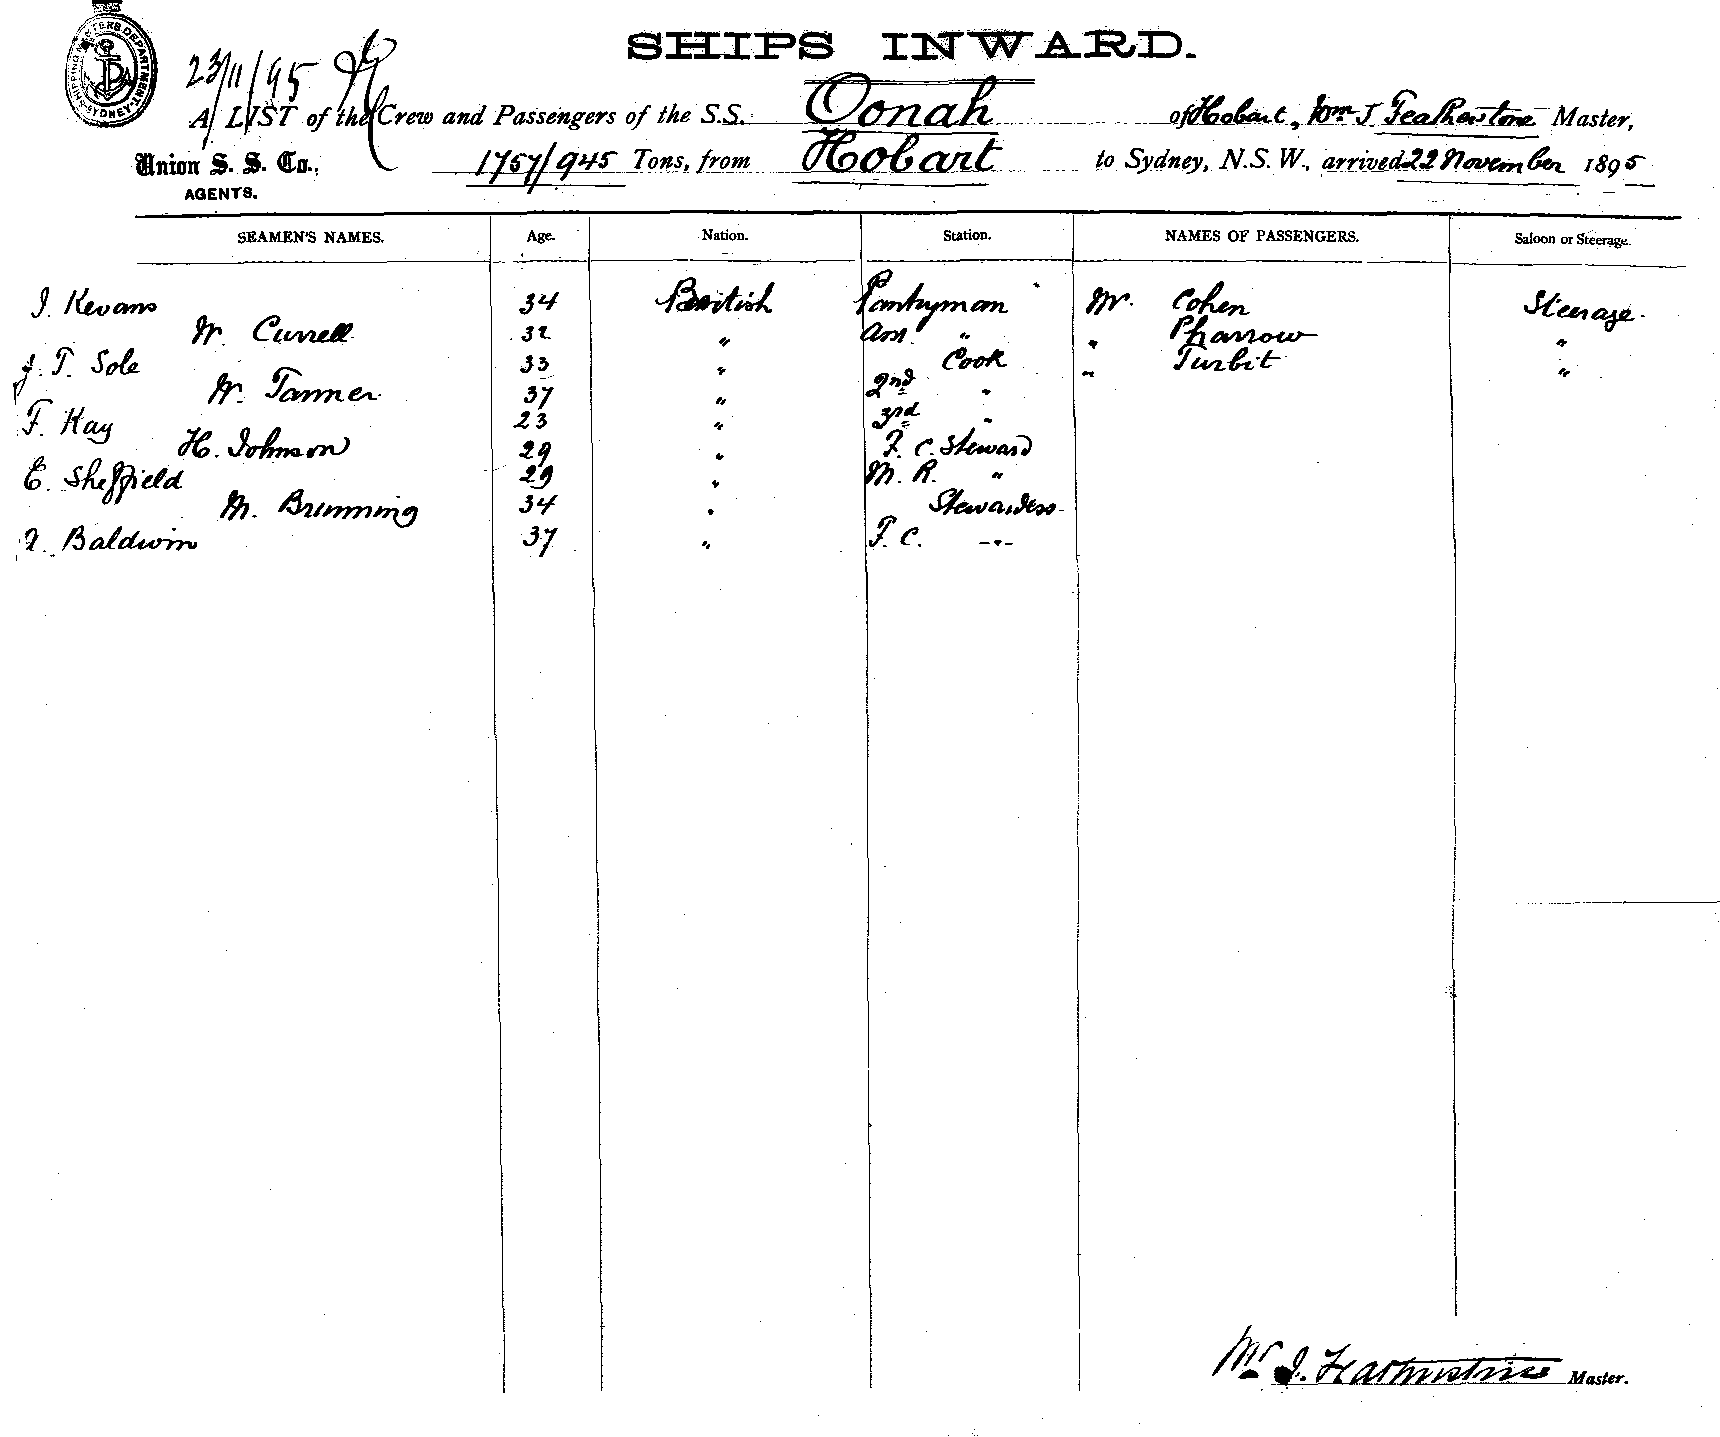 SHIPPING MASTERS DEPARTMENT SYDNEY
23/11/95
SHIPS INWARD.
A LIST of the Crew and Passengers of the S.S. Oonah of Hobart, Wm J. Featherstone Master,
Union S. S. Co., AGENTS. 1757/945 Tons, from Hobart to Sydney, N.S.W., arrived 22 November 1895
SEAMEN'S NAMES. Age. Nation. Station. NAMES OF PASSENGERS. Saloon or Steerage.
J. Kevans 34 British Pantryman Mr. Cohen Steerage.
W. Currell 32 " " " Pharrow "
J. T. Sole 33 " Cook " Turbit "
W. Tanner 37 " 2nd "
F. Kay 23 " 3rd "
H. Johnson 29 " F. C. Steward
E. Sheffield 29 " M. R. "
M. Brunning 34 " Stewardess
Baldwin 37 " F. C. -"-
Wm J. Featherstone Master.